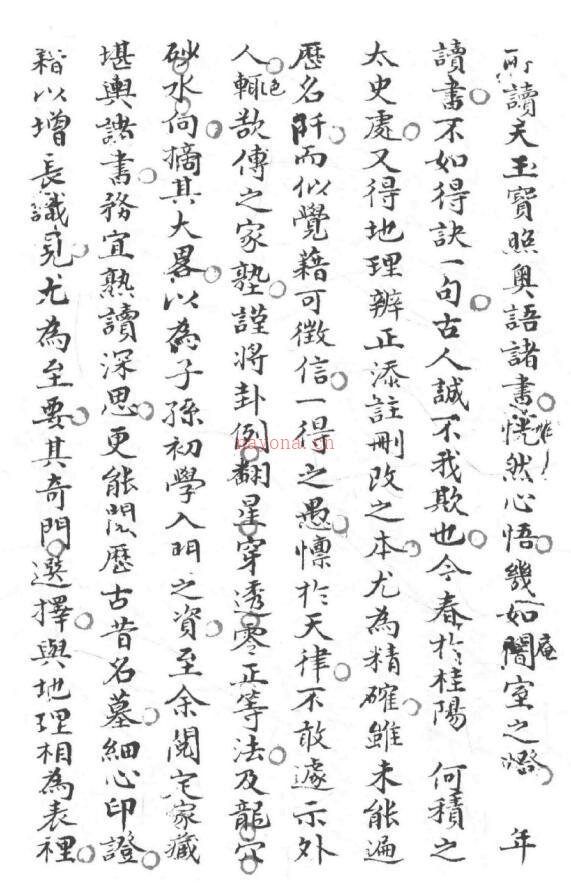 所讀天玉寶照奧語諸書恍然心悟幾如闇室之燈 年
讀書不如得訣一句古人誠不我欺也今春於桂陽 何積之
太史處又得地理辨正添註刪改之本尤為精確雖未能遍
歷名阡而似覺藉可徵信一得之愚懍於天律不敢遽示外
人輒敢傳之家塾謹將卦例翻星穿透零正等法及龍穴
砂水向摘其大畧以為子孫初學入門之資至余閱定家藏
堪輿諸書務宜熟讀深思更能閱歷古昔名墓細心印證
藉以增長識見尤為至要其奇門選擇與地理相為表裡
nayona.cn